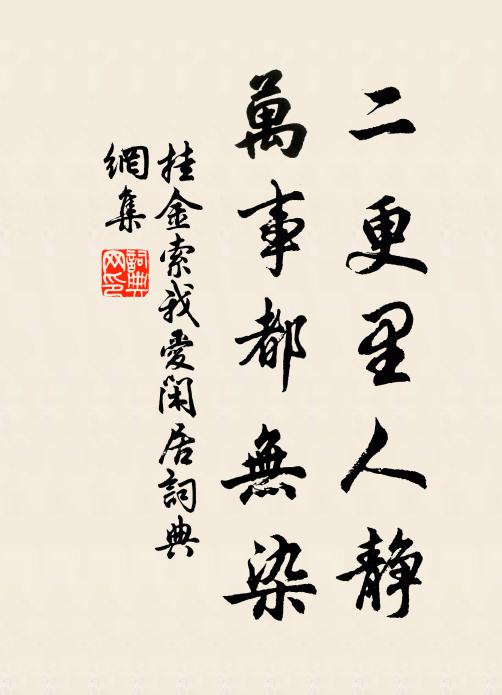 二更里人静
萬事都無染
挂金索我愛閑居詞典
網集
詞典
网印